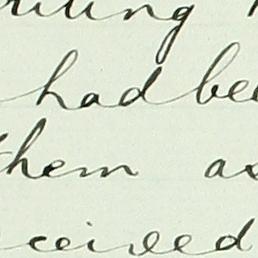 riting
had bee
them as
ceived